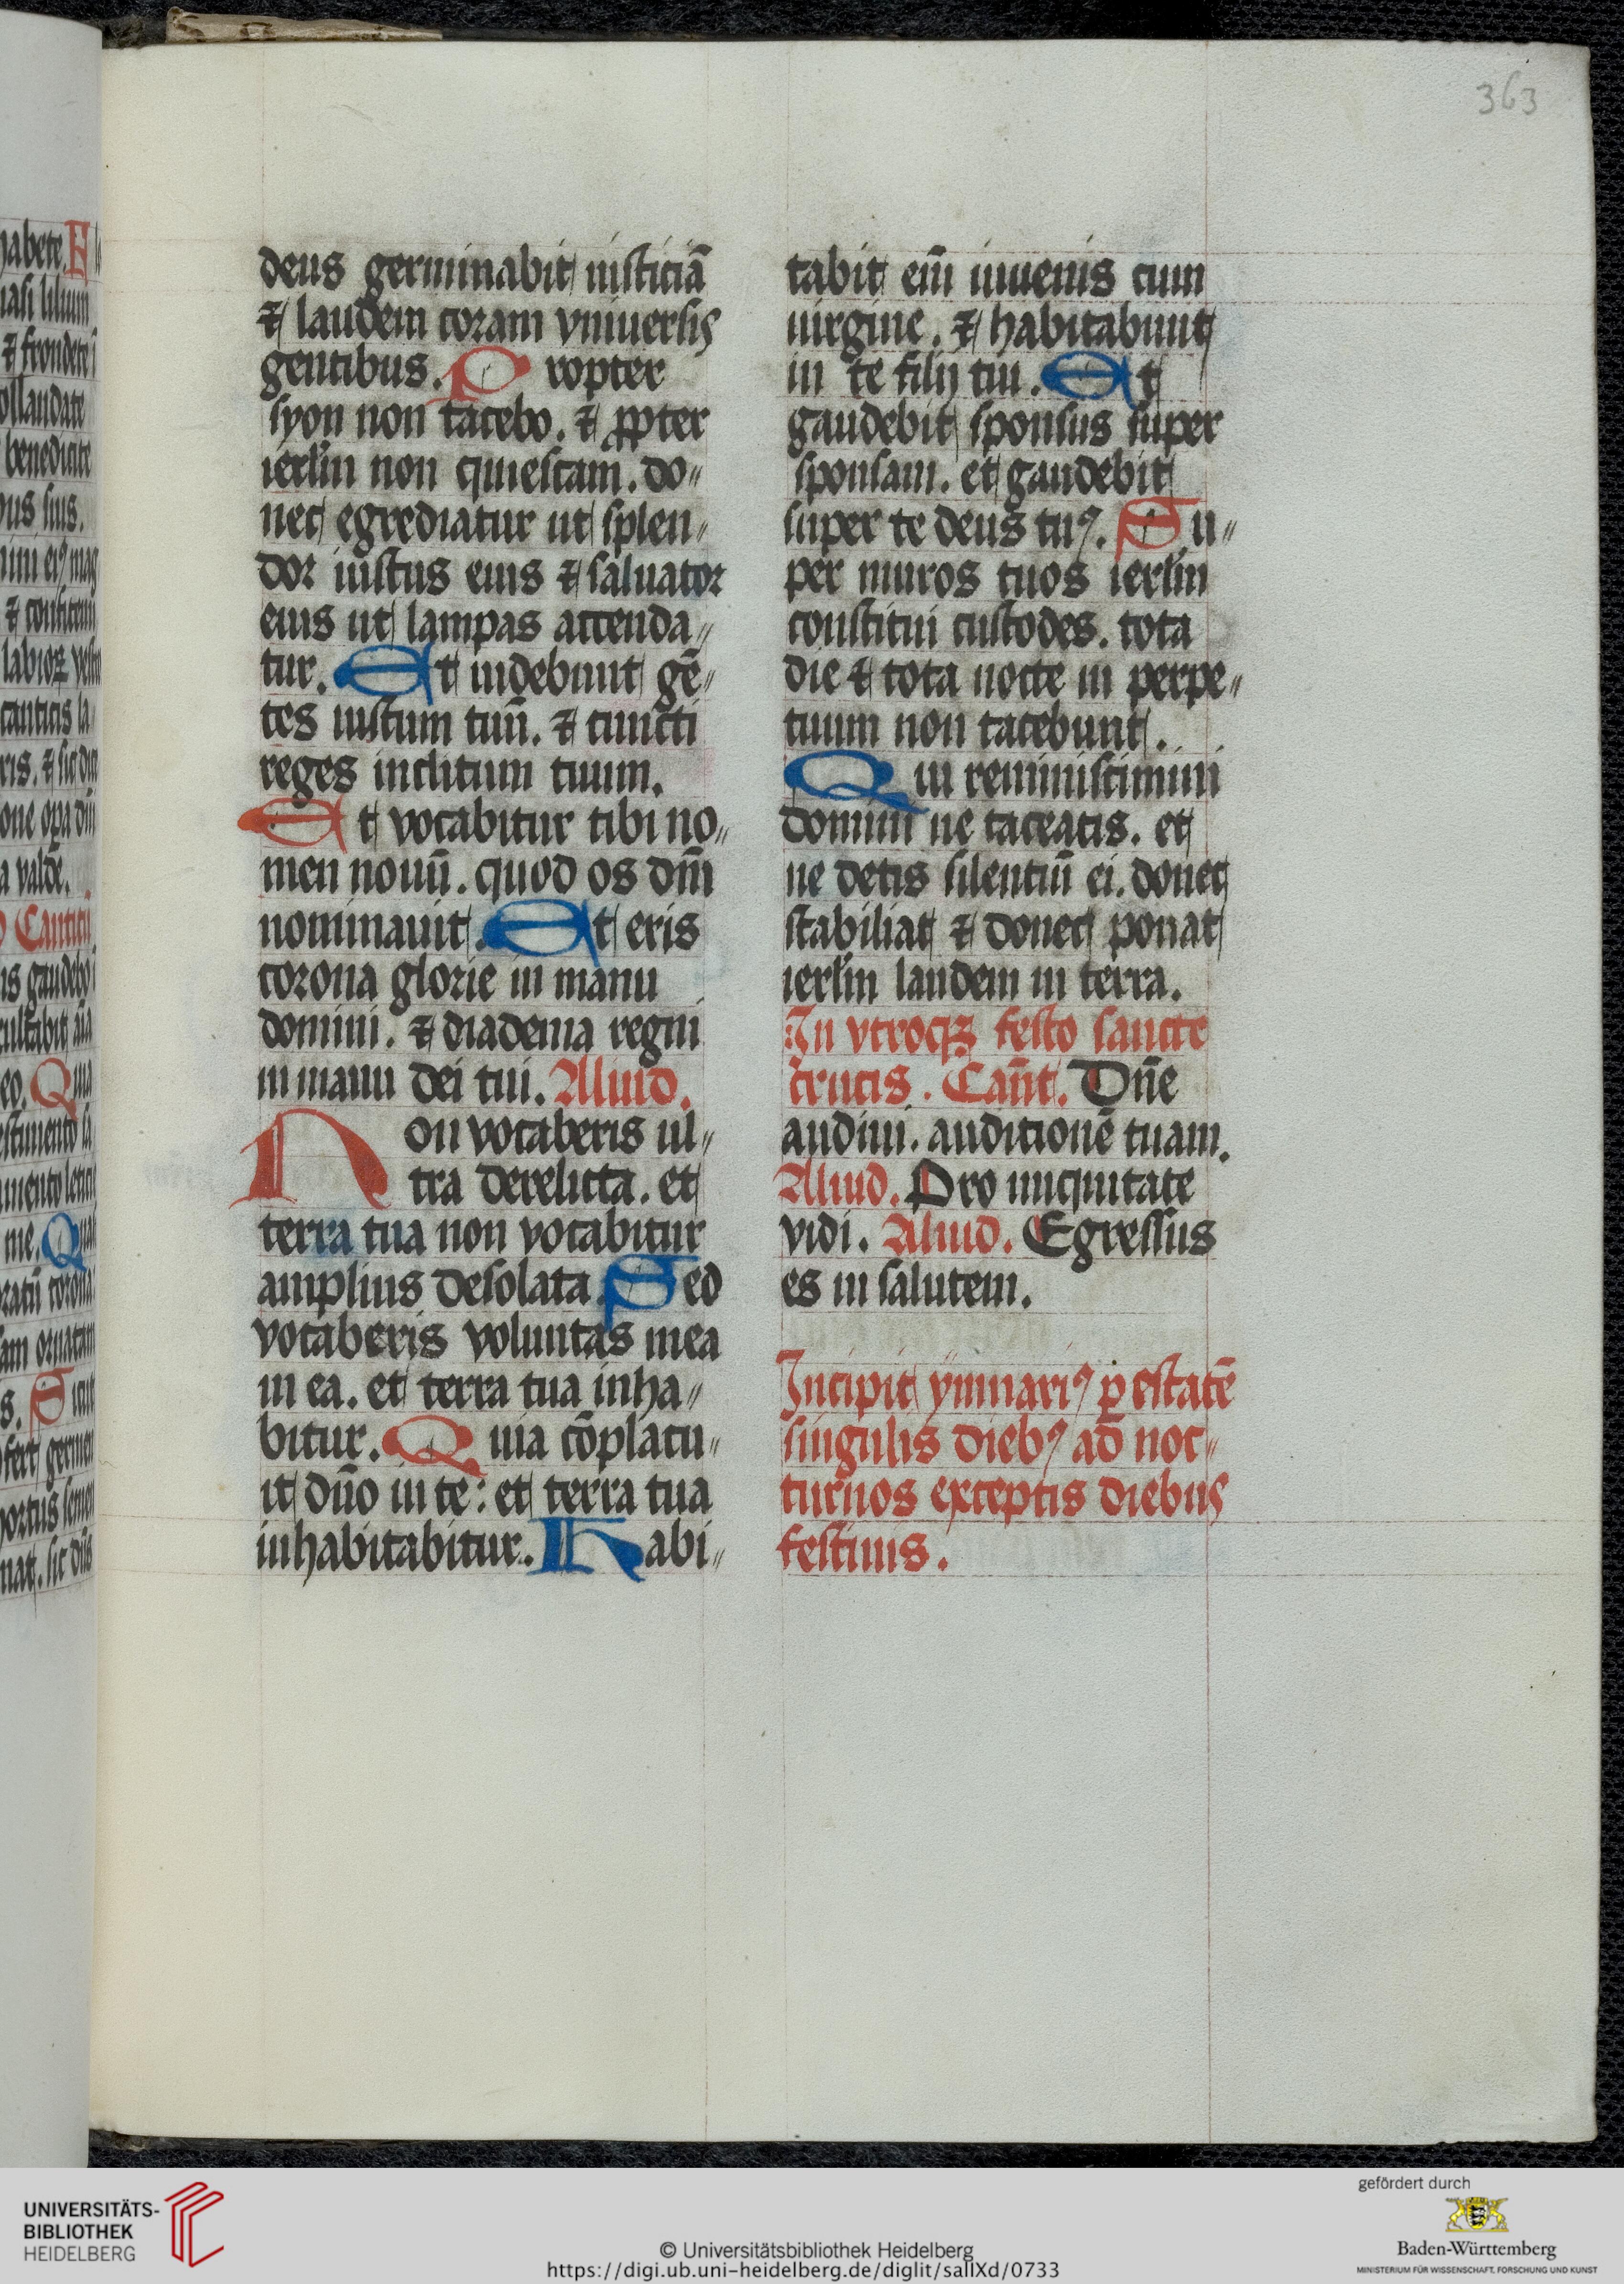 363
deus germinabit iusticiā
⁊ laudem coram vniuersis
gentibus. Propter
syon non tacebo. ⁊ ꝓpter
ierl̄m non quiescam. do〃
nec egrediatur ut splen〃
dor iustus eius ⁊ saluator
eius ut lampas accenda〃
tur. Et uidebunt gē〃
tes iustum tuū. ⁊ cuncti
reges inclitum tuum.
Et vocabitur tibi no〃
men nouū. quod os dn̄i
nominauit. Et eris
corona glorie in manu
domini. ⁊ diadema regni
in manu dei tui. Aliud.
Non vocaberis ul〃
tra derelicta. et
terra tua non vocabitur
amplius desolata. Sed
vocaberis voluntas mea
in ea. et terra tua inha〃
bitur. Quia cōplacu〃
it dn̄o in te: et terra tua
inhabitabitur. Habi〃
tabit em̄ iuuenis cum
uirgine. ⁊ habitabunt
in te filij tui. Et
gaudebit sponsus super
sponsam. et gaudebit
super te deus tuꝰ. Su〃
per muros tuos ierl̄m
constitui custodes. tota
die ⁊ tota nocte in perpe〃
tuum non tacebunt.
Qui reminiscimini
domini ne taceatis. et
ne detis silentiū ei. donec
stabiliat ⁊ donec ponat
ierl̄m laudem in terra.
In vtroqꝫ festo sancte
crucis. Can̄t. Dn̄e
audiui. auditionē tuam.
Aliud. Pro iniquitate
vidi. Aliud. Egressus
es in salutem.
Incipit ymnariꝰ ꝑ estatē
singulis diebꝰ ad noc〃
turnos exceptis diebus
festiuis.
UNIVERSITÄTS-
BIBLIOTHEK
HEIDELBERG
© Universitätsbibliothek Heidelberg
https://digi.ub.uni-heidelberg.de/diglit/salIXd/0733
gefördert durch
Baden-Württemberg
MINISTERIUM FÜR WISSENSCHAFT, FORSCHUNG UND KUNST